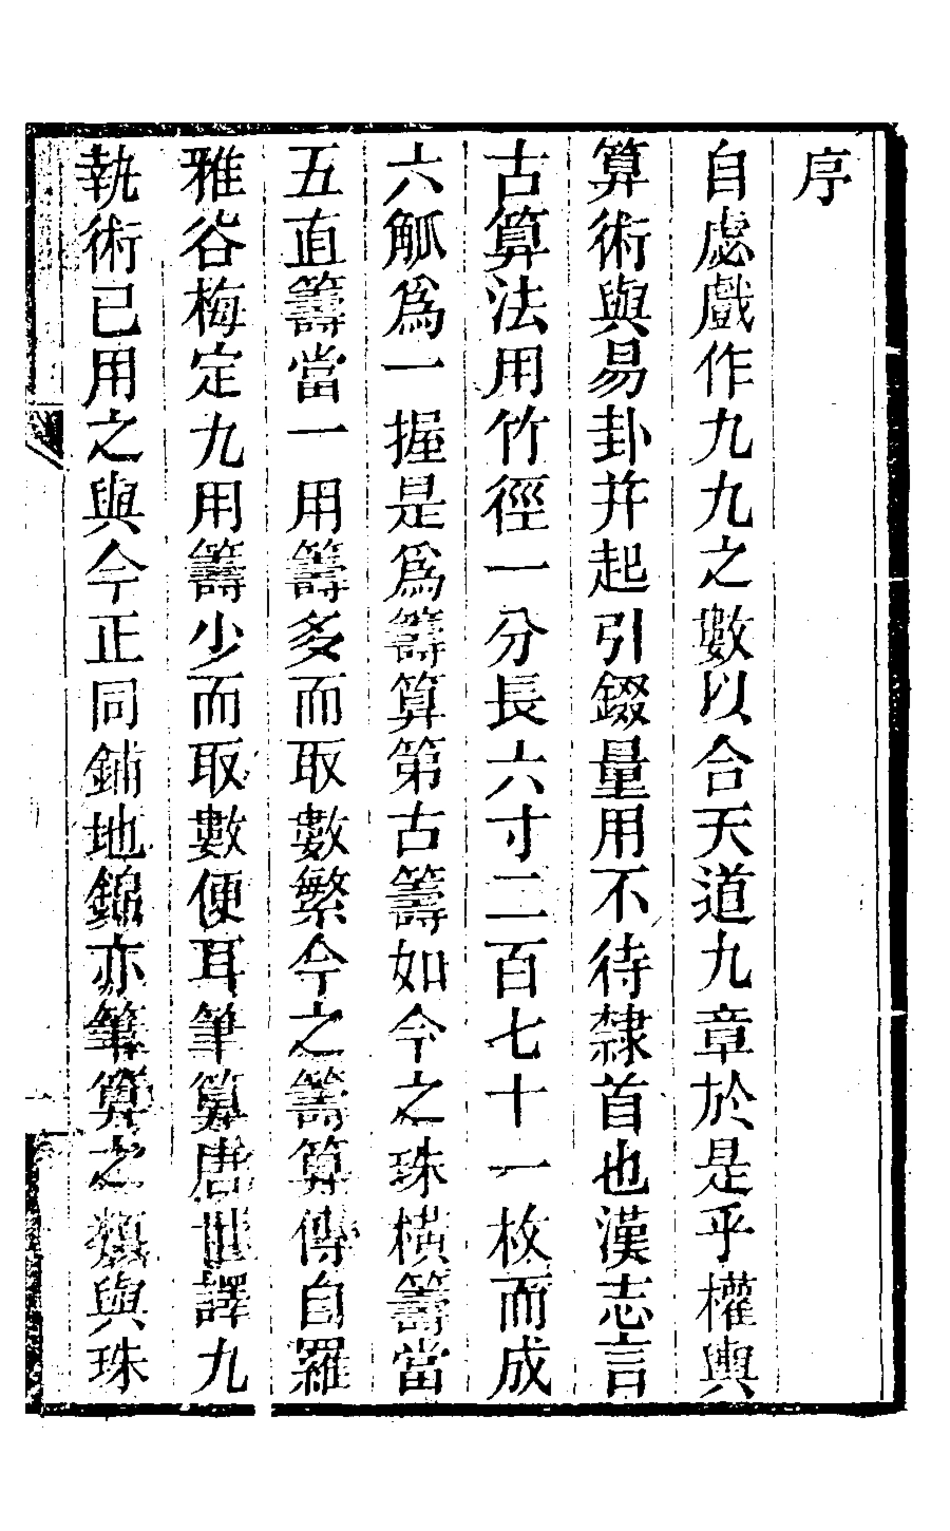 序
自虙戲作九九之數以合天道九章於是乎權輿
算術與易卦并起引錣量用不待隸首也漢志言
古算法用竹徑一分長六寸二百七十一枚而成
六觚爲一握是爲籌算第古籌如今之珠橫籌當
五直籌當一用籌多而取數繁今之籌算傳自羅
雅谷梅定九用籌少而取數便耳筆算唐世譯九
執術已用之與今正同鋪地錦亦筆算之類與珠